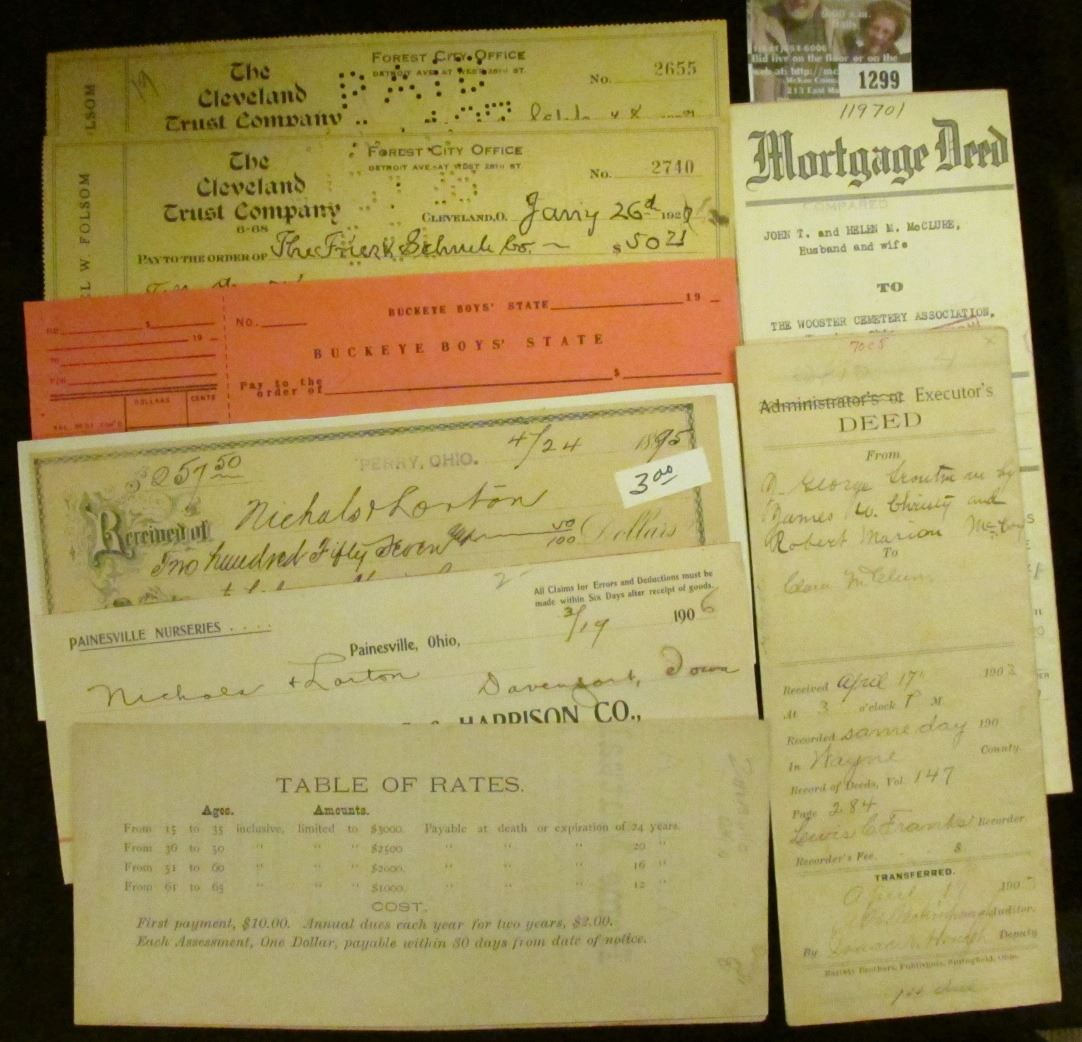 8:00 a.m.
Daily
Bid live on the floor or on the
web at: http://mc
1299
FOREST CITY OFFICE
DETROIT AVE. AT WEST 28TH ST.
The
Cleveland
Trust Company
PAID
No. 2655
LSOM
FOREST CITY OFFICE
DETROIT AVE. AT WEST 28TH ST.
The
Cleveland
Trust Company
6-68
No. 2740
CLEVELAND, O. Jany 26th 192
PAY TO THE ORDER OF The Friesk Schuele Co. $ 50 21
EL W. FOLSOM
NO. $
19
TO
FOR
DOLLARS CENTS
BUCKEYE BOYS' STATE 19
No.
BUCKEYE BOYS' STATE
Pay to the
order of $
$257 50
PERRY, OHIO. 4/24 1895
3.00
Received of Nichols & Lorton
Two hundred Fifty Seven 50/100 Dollars
All Claims for Errors and Deductions must be
made within Six Days after receipt of goods.
PAINESVILLE NURSERIES . . . .
Painesville, Ohio, 3/19 1906
Nichols & Lorton Davenport, Iowa
HARRISON CO.,
TABLE OF RATES.
Ages. Amounts.
From 15 to 35 inclusive, limited to $3000. Payable at death or expiration of 24 years.
From 36 to 50 " " " $2500 " " " 20 "
From 51 to 60 " " " $2000. " " " 16 "
From 61 to 65 " " " $1000. " " " 12 "
COST.
First payment, $10.00. Annual dues each year for two years, $2.00.
Each Assessment, One Dollar, payable within 30 days from date of notice.
119701
Mortgage Deed
COMPARED
JOHN T. and HELEN M. McCLURE,
Husband and wife
TO
THE WOOSTER CEMETERY ASSOCIATION,
7008
Administrator's or Executor's
DEED
From
George by
James W. Christy and
Robert Marion McCoy
To
Received April 17 190
At 3 o'clock P M
Recorded same day 190
In Wayne County.
Record of Deeds, Vol. 147
Page 284
Lewis C Franks Recorder
Recorder's Fee, $
TRANSFERRED.
April 17 190
Auditor.
By Deputy
Barrett Brothers, Publishers, Springfield, Ohio.